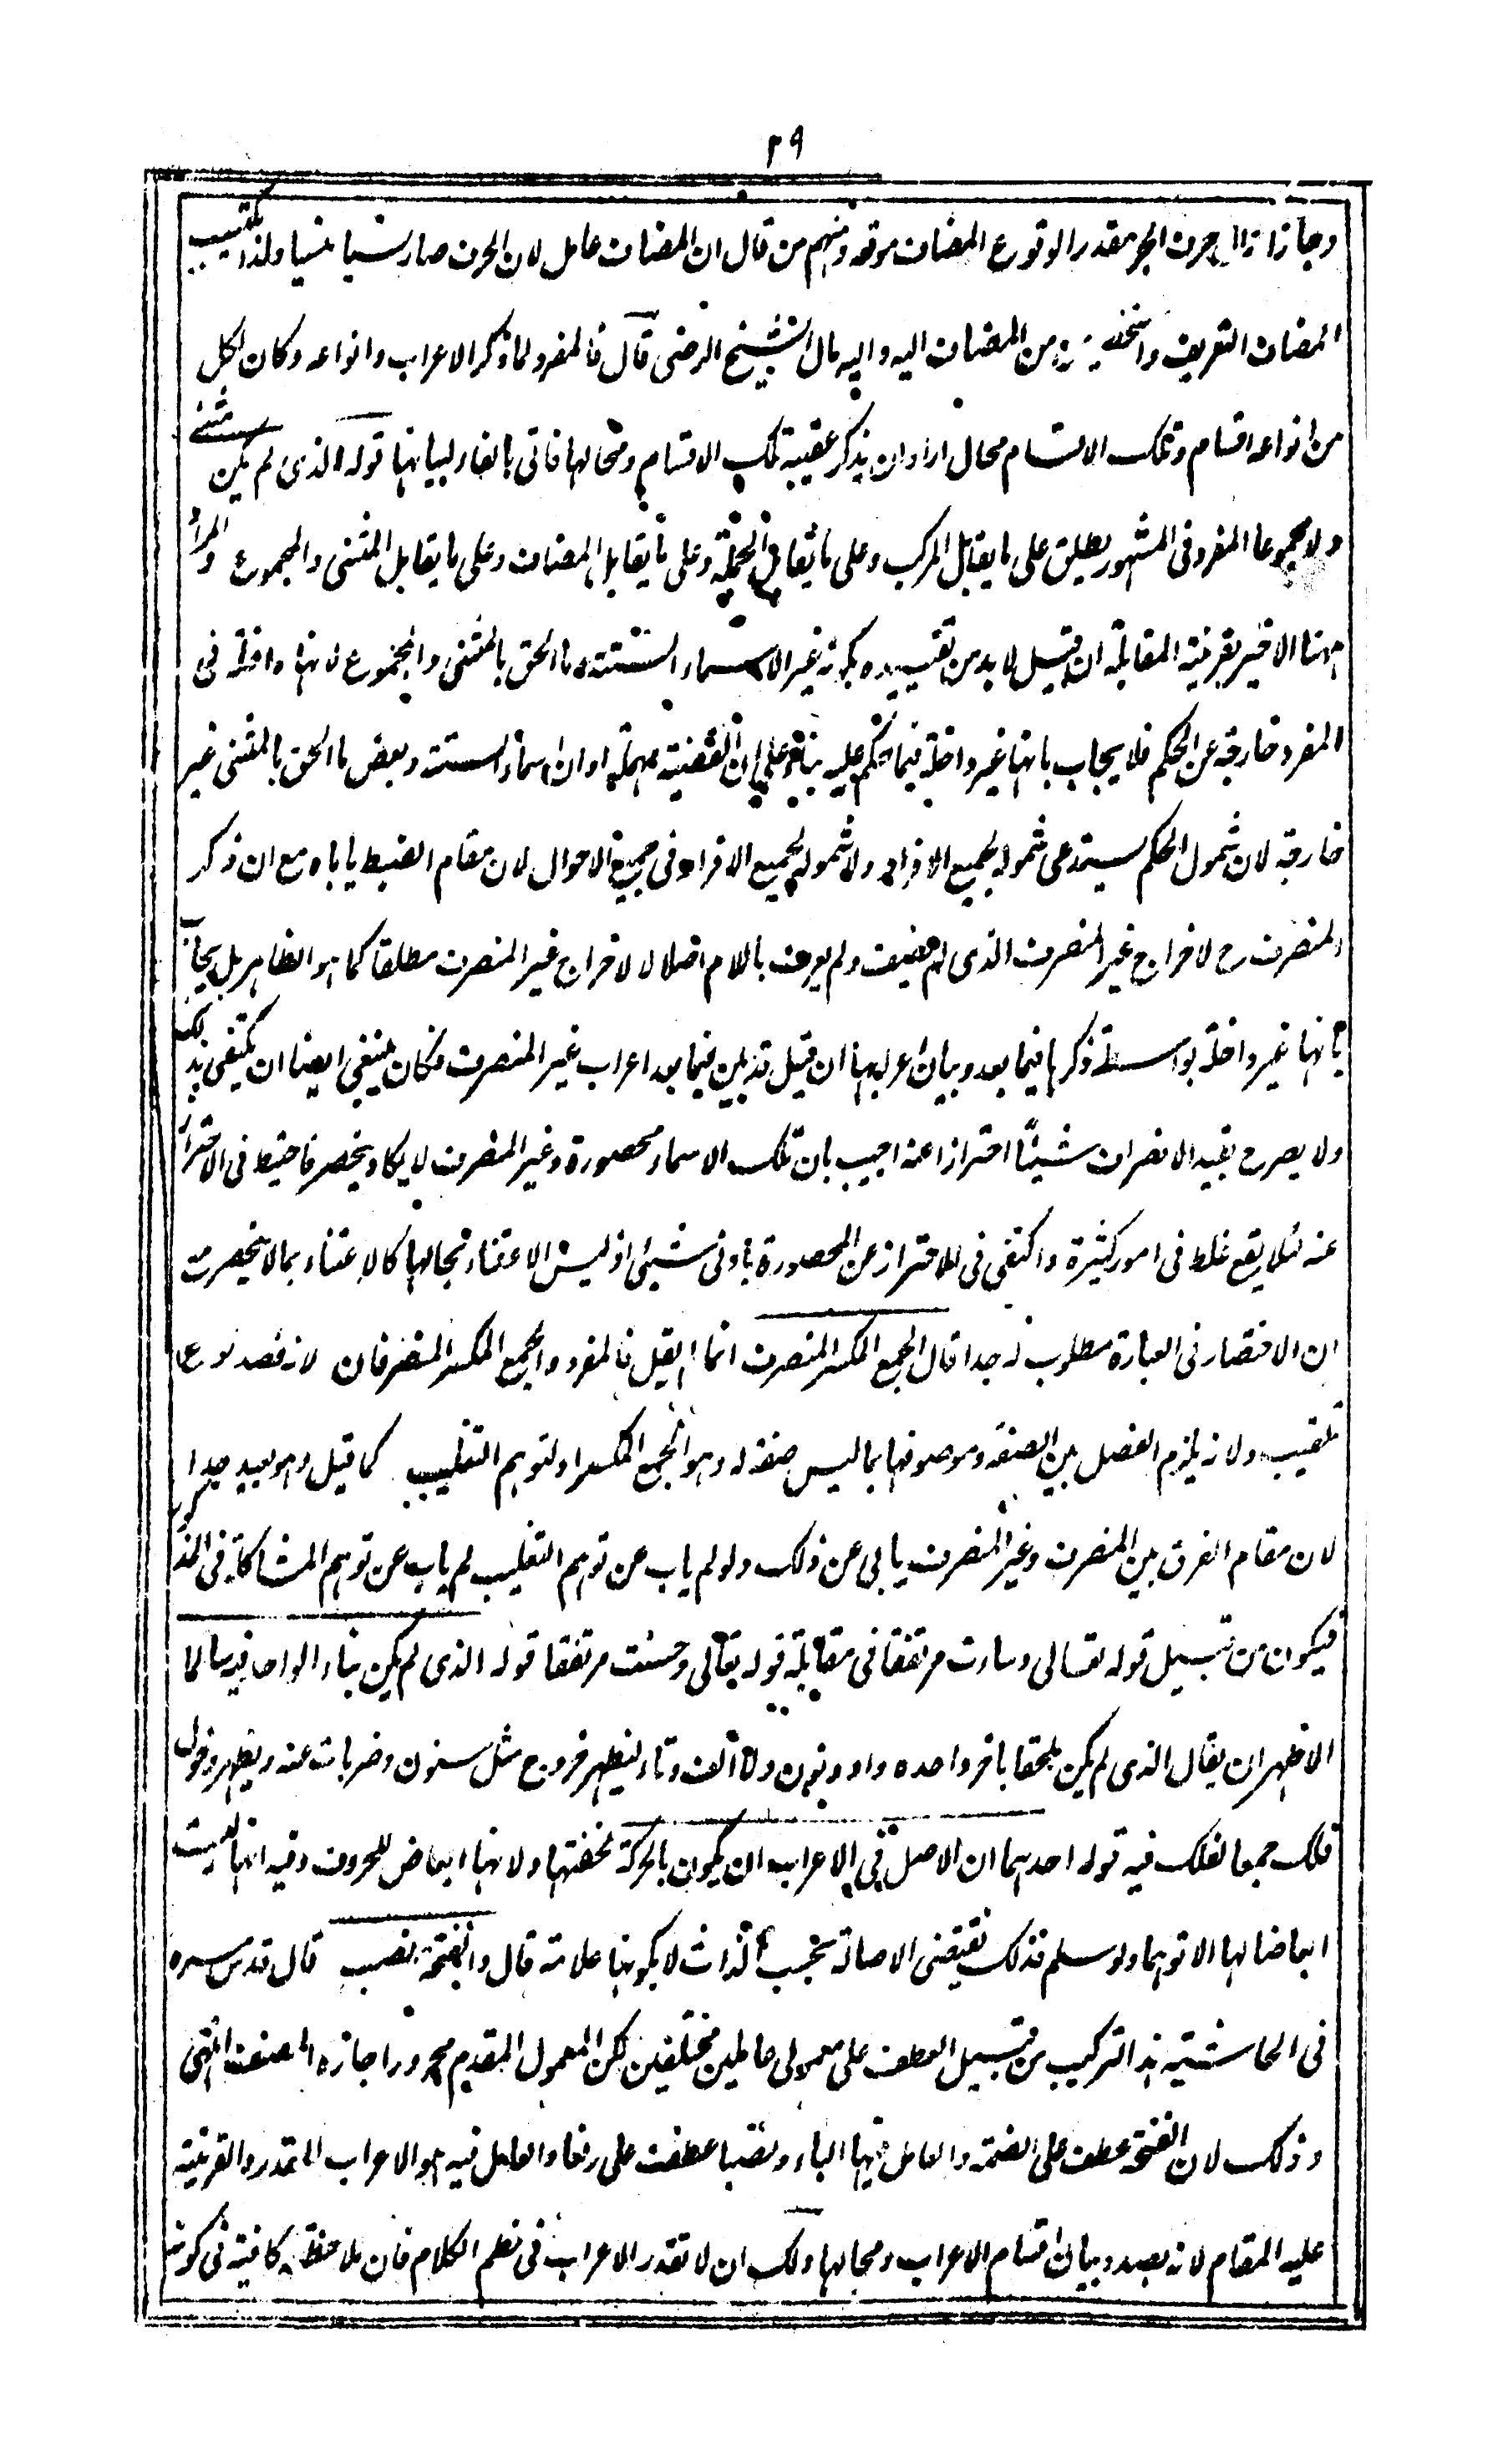 ٢٩
وجاز اذ الجر حرف الجر مقدر الوقوع المضاف موقعه ومنهم من قال ان المضاف عامل لان الحرف صار نسيا منسيا ولذا يكتسب
المضاف التعريف والتخصيص من المضاف اليه واليه مال الشيخ الرضى قال فالمفرد لما ذكر الاعراب وانواعه وكان لكل
من انواعه اقسام وتلك الاقسام محال اراد ان يذكر عقيبه تلك الاقسام ومحالها فاتى بالفاء لبيانها قوله الذى لم يكن مثنى
ولا مجموعا المفرد فى المشهور يطلق على ما يقابل المركب وعلى ما يقابل الجملة وعلى ما يقابل المضاف وعلى ما يقابل المثنى والمجموع والمراد
ههنا الاخير بقرينة المقابلة ان قيل لا بد من تقييده بكونه غير الاسماء الستة وما الحق بالمثنى والمجموع لانها داخلة فى
المفرد خارجة عن الحكم فلا يجاب بانها غير داخلة فيما حكم عليه بناء على ان القضية مهملة او ان اسماء الستة وبعض ما الحق بالمثنى غير
خارجة لان شمول الحكم يستدعى شموله لجميع الافراد ولا شموله لجميع الافراد فى جميع الاحوال لان مقام الضبط ياباه مع ان ذكر
المنصرف ح لاخراج غير المنصرف الذى لم يضف ولم يعرف باللام اصلا لا لاخراج غير المنصرف مطلقا كما هو الظاهر بل يجاب
بانها غير داخلة بواسطة ذكرها فيما بعد وبيان اعرابها ان قيل قد بين فيما بعد اعراب غير المنصرف فكان ينبغى ايضا ان يكتفى بذلك
ولا يصرح بقيد الانصراف شيئا احترازا عنه اجيب بان تلك الاسماء محصورة وغير المنصرف لا يكاد ينحصر فاحتيط فى الاحتراز
عنه لئلا يقع غلط فى امور كثيرة واكتفى فى للاحتراز عن المحصورة بادنى شيئ اذ ليس الاعتناء بحالها كالاعتناء بما لا ينحصر مع
ان الاختصار فى العبارة مطلوب له جدا قال الجمع المكسر المنصرف انما لم يقل فالمفرد والجمع المكسر المنصرفان لانه قصد نوع
تلقيب ولانه يلزم الفصل بين الصفة وموصوفها بما ليس صفة له وهو الجمع المكسر او لتوهم التغليب كما قيل وهو بعيد جدا
لان مقام الفرق بين المنصرف وغير المنصرف يابى عن ذلك ولو لم ياب عن توهم التغليب لم ياب عن توهم المشاكلة فى المذكور
فيكون من قبيل قوله تعالى وساءت مرتفقا فى مقابلة قوله تعالى وحسنت مرتفقا قوله الذى لم يكن بناء الواحد فيه سالما
الاظهر ان يقال الذى لم يكن ملحقا باخر واحده واو ونون ولا الف وتاء ليظهر خروج مثل سنون وضربات عنه ويظهر دخول
فلك جمعا لفلك فيه قوله احدهما ان الاصل فى الاعراب ان يكون بالحركة لخفتها ولانها ابعاض للحروف وفيه انها ليست
ابعاضا لها الا توهما ولو سلم فذلك يقتضى الاصالة بحسب الذات لا بكونها علامة قال والفتحة نصبا قال قدس سره
فى الحاشية هذا التركيب من قبيل العطف على معمولى عاملين مختلفين لكن المعمول المقدم مجرور اجازه المصنف انتهى
وذلك لان الفتحة عطف على الضمة والعامل فيها الباء ونصبا عطف على رفعا والعامل فيه هو الاعراب المقدر والقرينة
عليه المقام لانه بصدد بيان اقسام الاعراب ومحالها ولك ان لا تقدر الاعراب فى نظم الكلام فان ملاحظته كافية فى كونه